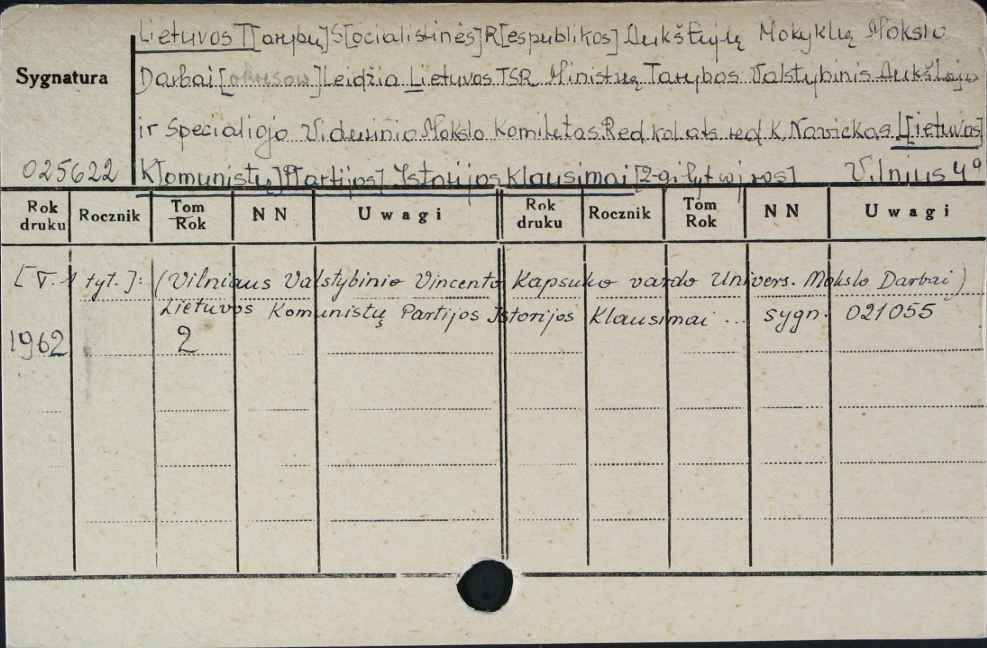 Lietuvos T[arybų] S[ocialistinės] R[espublikos] Aukštųjų Mokyklų Mokslo
Sygnatura
Darbai [okresow] Leidžia Lietuvos TSR Ministrų Tarybos Valstybinis Aukštojo
ir Specialiojo Vidurinio Mokslo Komitetas. Red. kol. ats. red. K. Navickas. L[ietuvos]
025622 K[omunistų] P[artijos] Istorijos Klausimai [2-gi tyt. w j. ros] Vilnius 4°
Rok druku Rocznik Tom Rok NN Uwagi Rok druku Rocznik Tom Rok NN Uwagi
[T. 1 tyt.]: (Vilniaus Valstybinio Vincento Kapsuko vardo Univers. Mokslo Darbai)
Lietuvos Komunistų Partijos Istorijos Klausimai ... sygn. 021055
1962 2